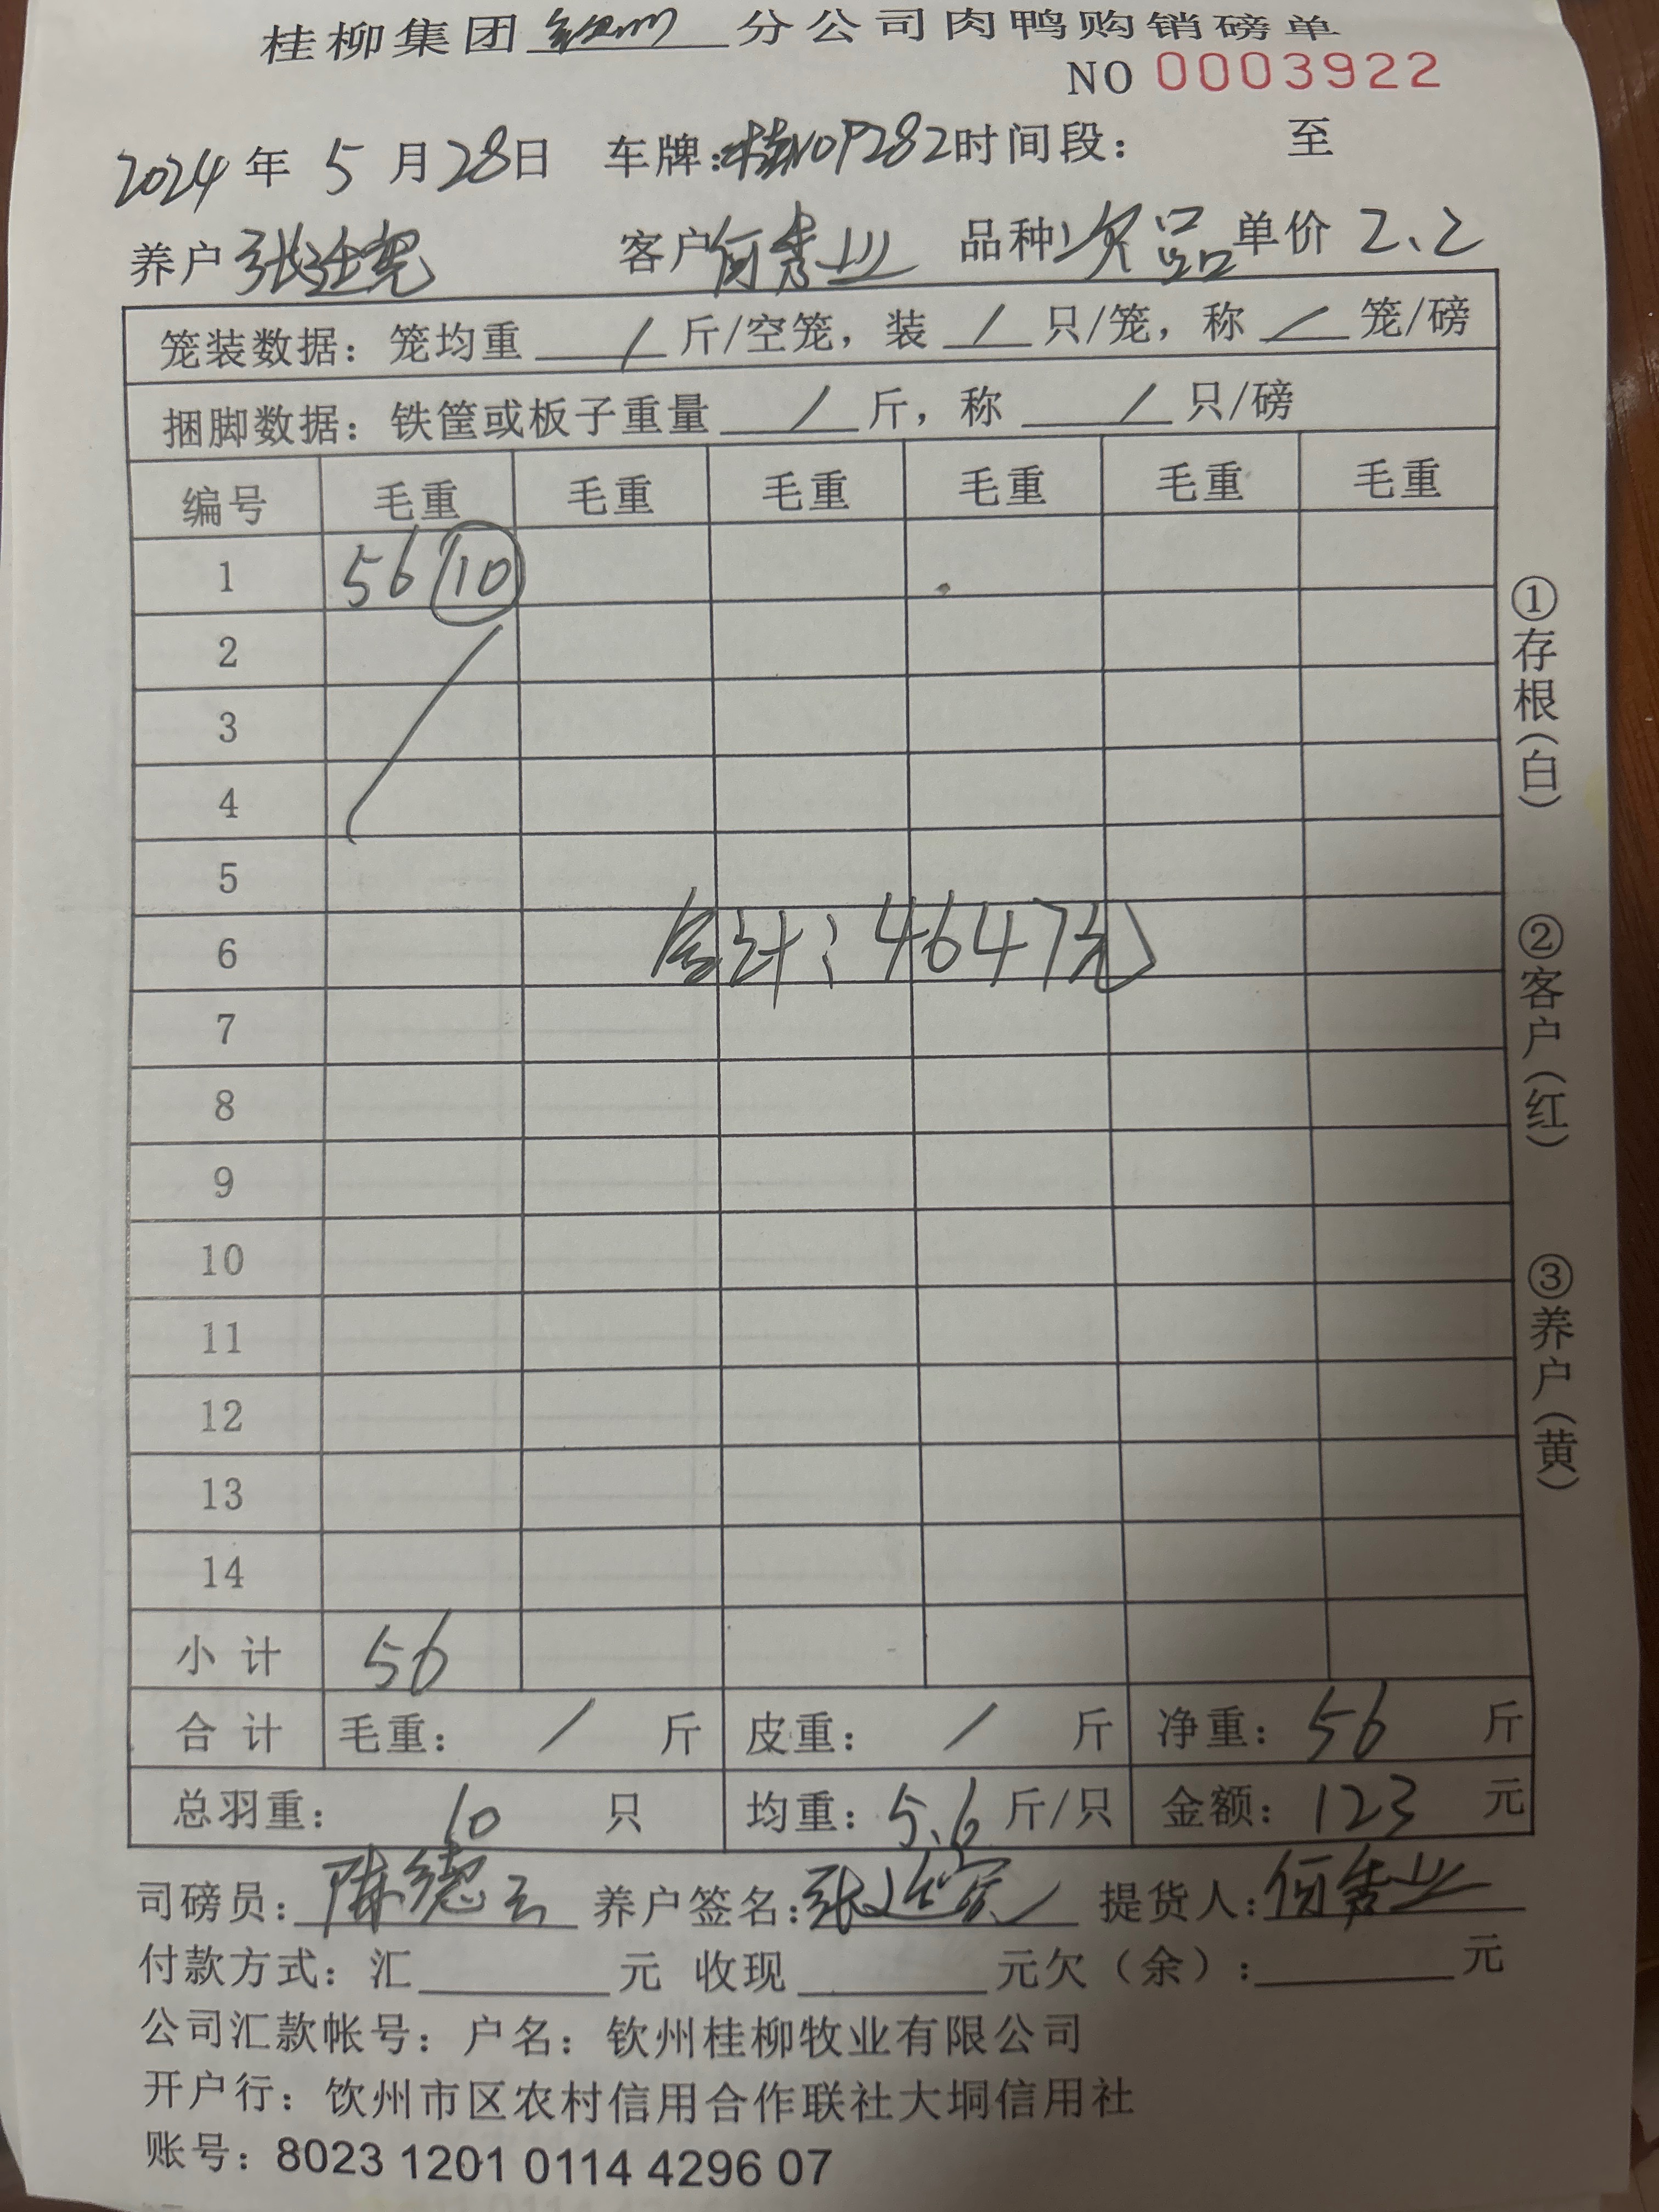 桂柳集团钦州分公司肉鸭购销磅单
NO 0003922
2024年 5月28日 车牌:桂NOP282时间段: 至
养户 客户何秀业 品种次品 单价 2、2
笼装数据: 笼均重 / 斤/空笼, 装 / 只/笼, 称 / 笼/磅
捆脚数据: 铁筐或板子重量 / 斤, 称 / 只/磅
编号 毛重 毛重 毛重 毛重 毛重 毛重
1 56 10
2
3
4
5
6 合计: 4647元
7
8
9
10
11
12
13
14
小计 56
合计 毛重: / 斤 皮重: / 斤 净重: 56 斤
总羽重: 10 只 均重: 5、6 斤/只 金额: 123 元
司磅员: 陈德云 养户签名: 提货人: 何秀业
付款方式: 汇 元 收现 元欠(余): 元
公司汇款帐号: 户名: 钦州桂柳牧业有限公司
开户行: 饮州市区农村信用合作联社大垌信用社
账号: 8023 1201 0114 4296 07
①存根(白) ②客户(红) ③养户(黄)